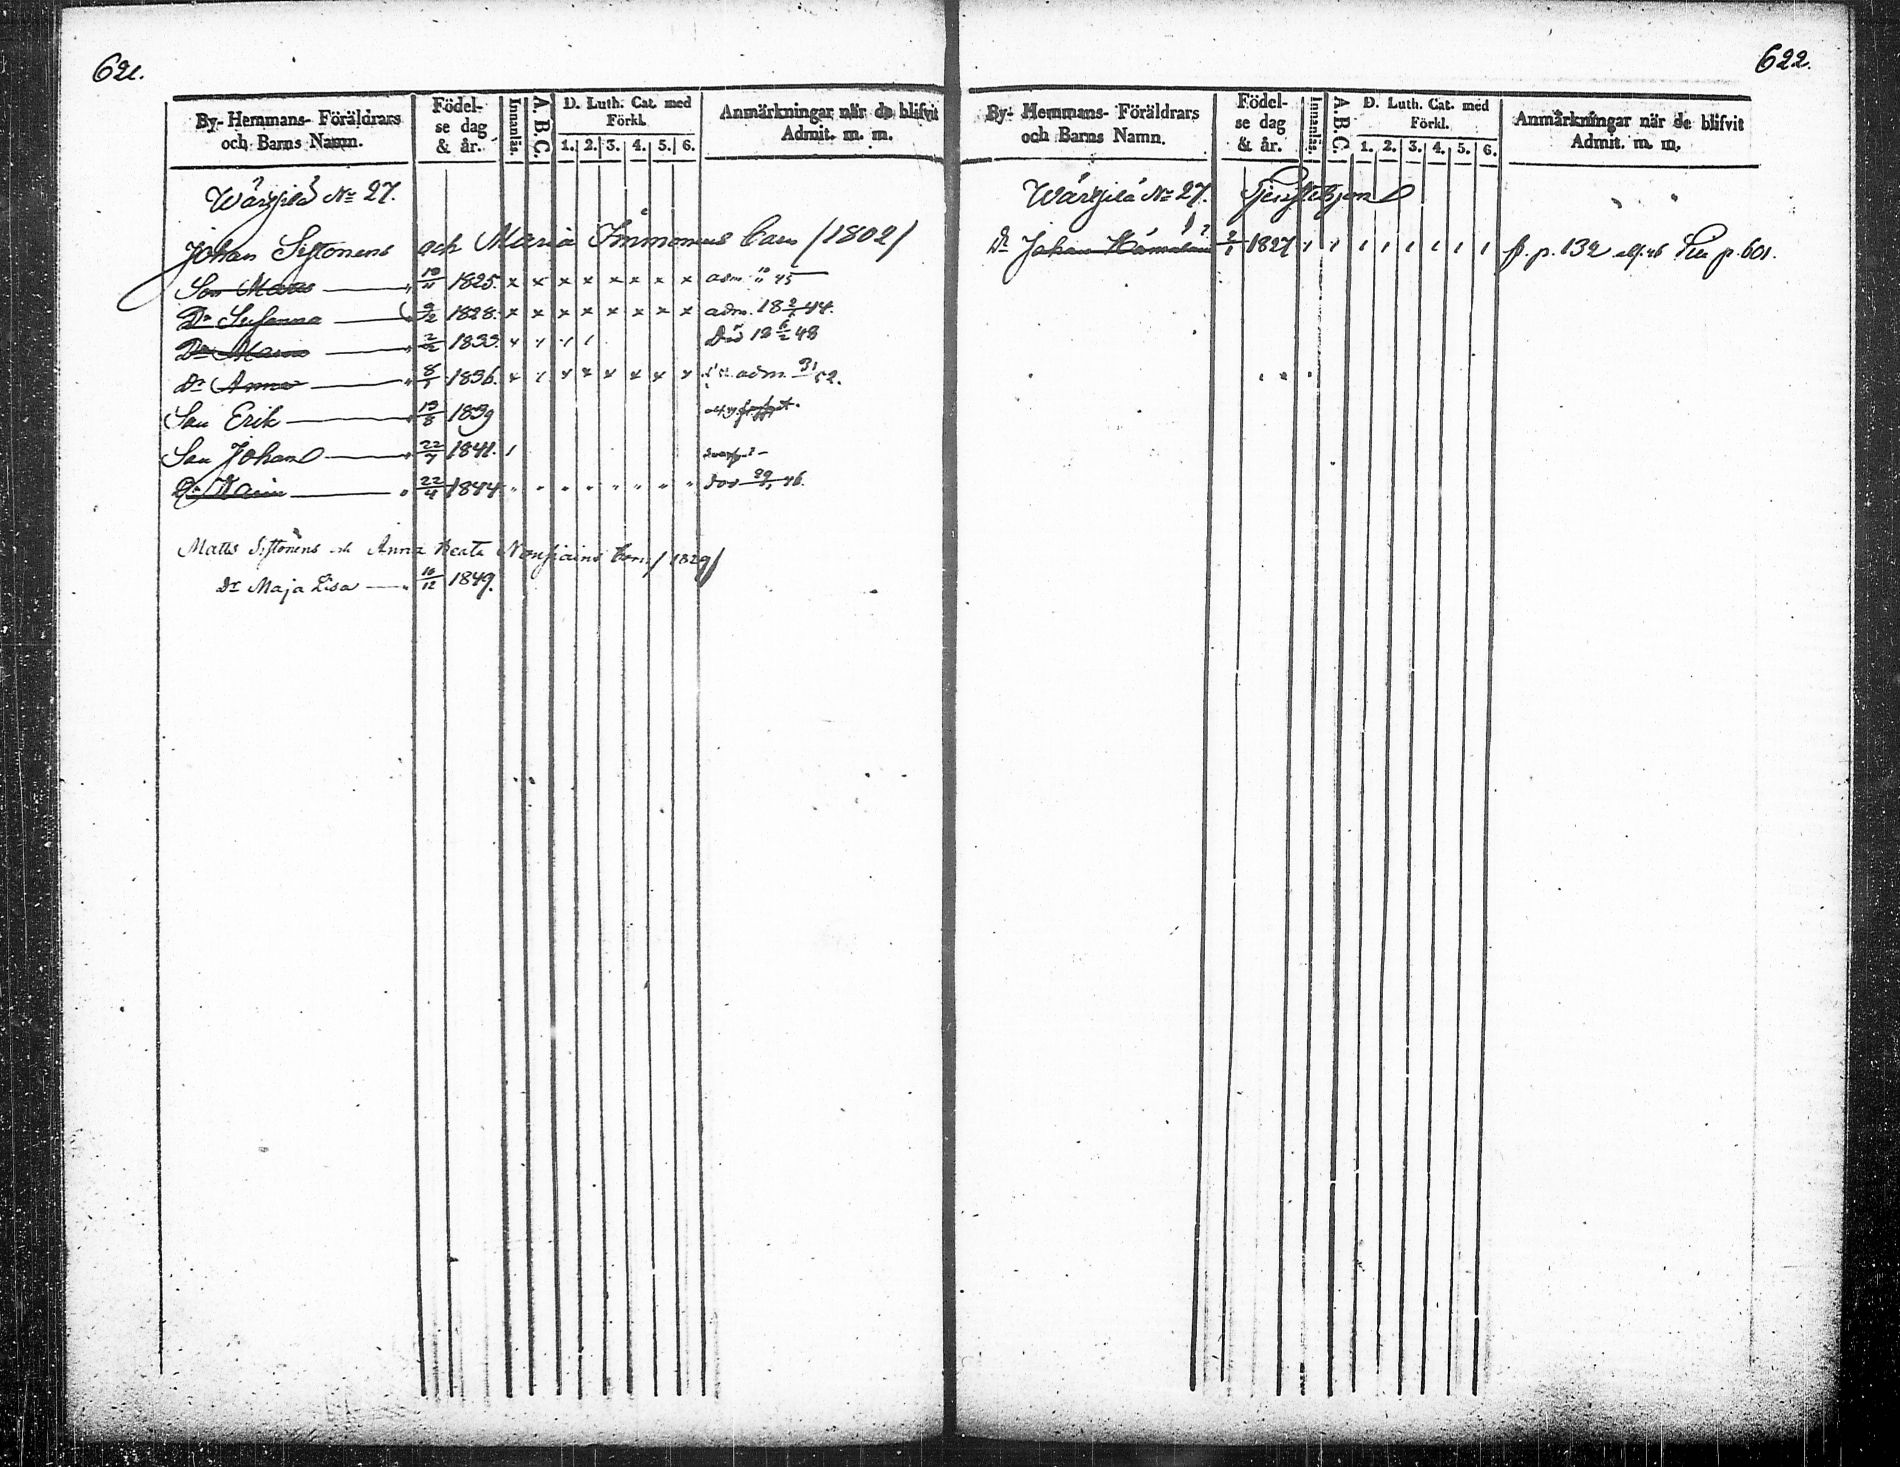 621.
By- Hemmans- Föräldrars och Barns Namn.
Födelse dag & år.
Innanläs.
A.B.C.
D. Luth. Cat. med Förkl.
1. 2. 3. 4. 5. 6.
Anmärkningar när de blifvit Admit. m. m.
Wärtsilä No 27.
Johan Sistonens och Maria Immonens barn /1802/
Son Matts 1825. x x x x x x x x
Dr Susanna 9/2 1828. x x x x x x x x adm. 18 44.
Dr Maria 1833. Död 18 48
Dr Anna 8/1 1836. adm. 31/ 52.
Son Erik 19/8 1839
Son Johan 22/7 1841.
Dr Karin 22/4 1844 död 29/ 46.
Matts Sistonens och Anna Beata Nousiains barn /1829/
Dr Maja Lisa 16/12 1849.
622.
By- Hemmans- Föräldrars och Barns Namn.
Födelse dag & år.
Innanläs.
A.B.C.
D. Luth. Cat. med Förkl.
1. 2. 3. 4. 5. 6.
Anmärkningar när de blifvit Admit. m. m.
Wärtsilä No 27. Tjenstehjon
Dr Johan 1827 p. 132 p. 601.